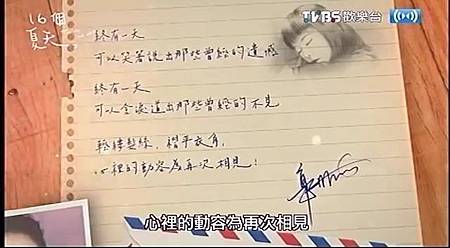 16個
夏天
TVBS歡樂台
終有一天
可以笑著說出那些曾經的遺憾
終有一天
可以全還這出那些曾經的不見
輕綁髮絲，褶平衣角，
心裡的動容為再次相見！
心裡的動容為再次相見